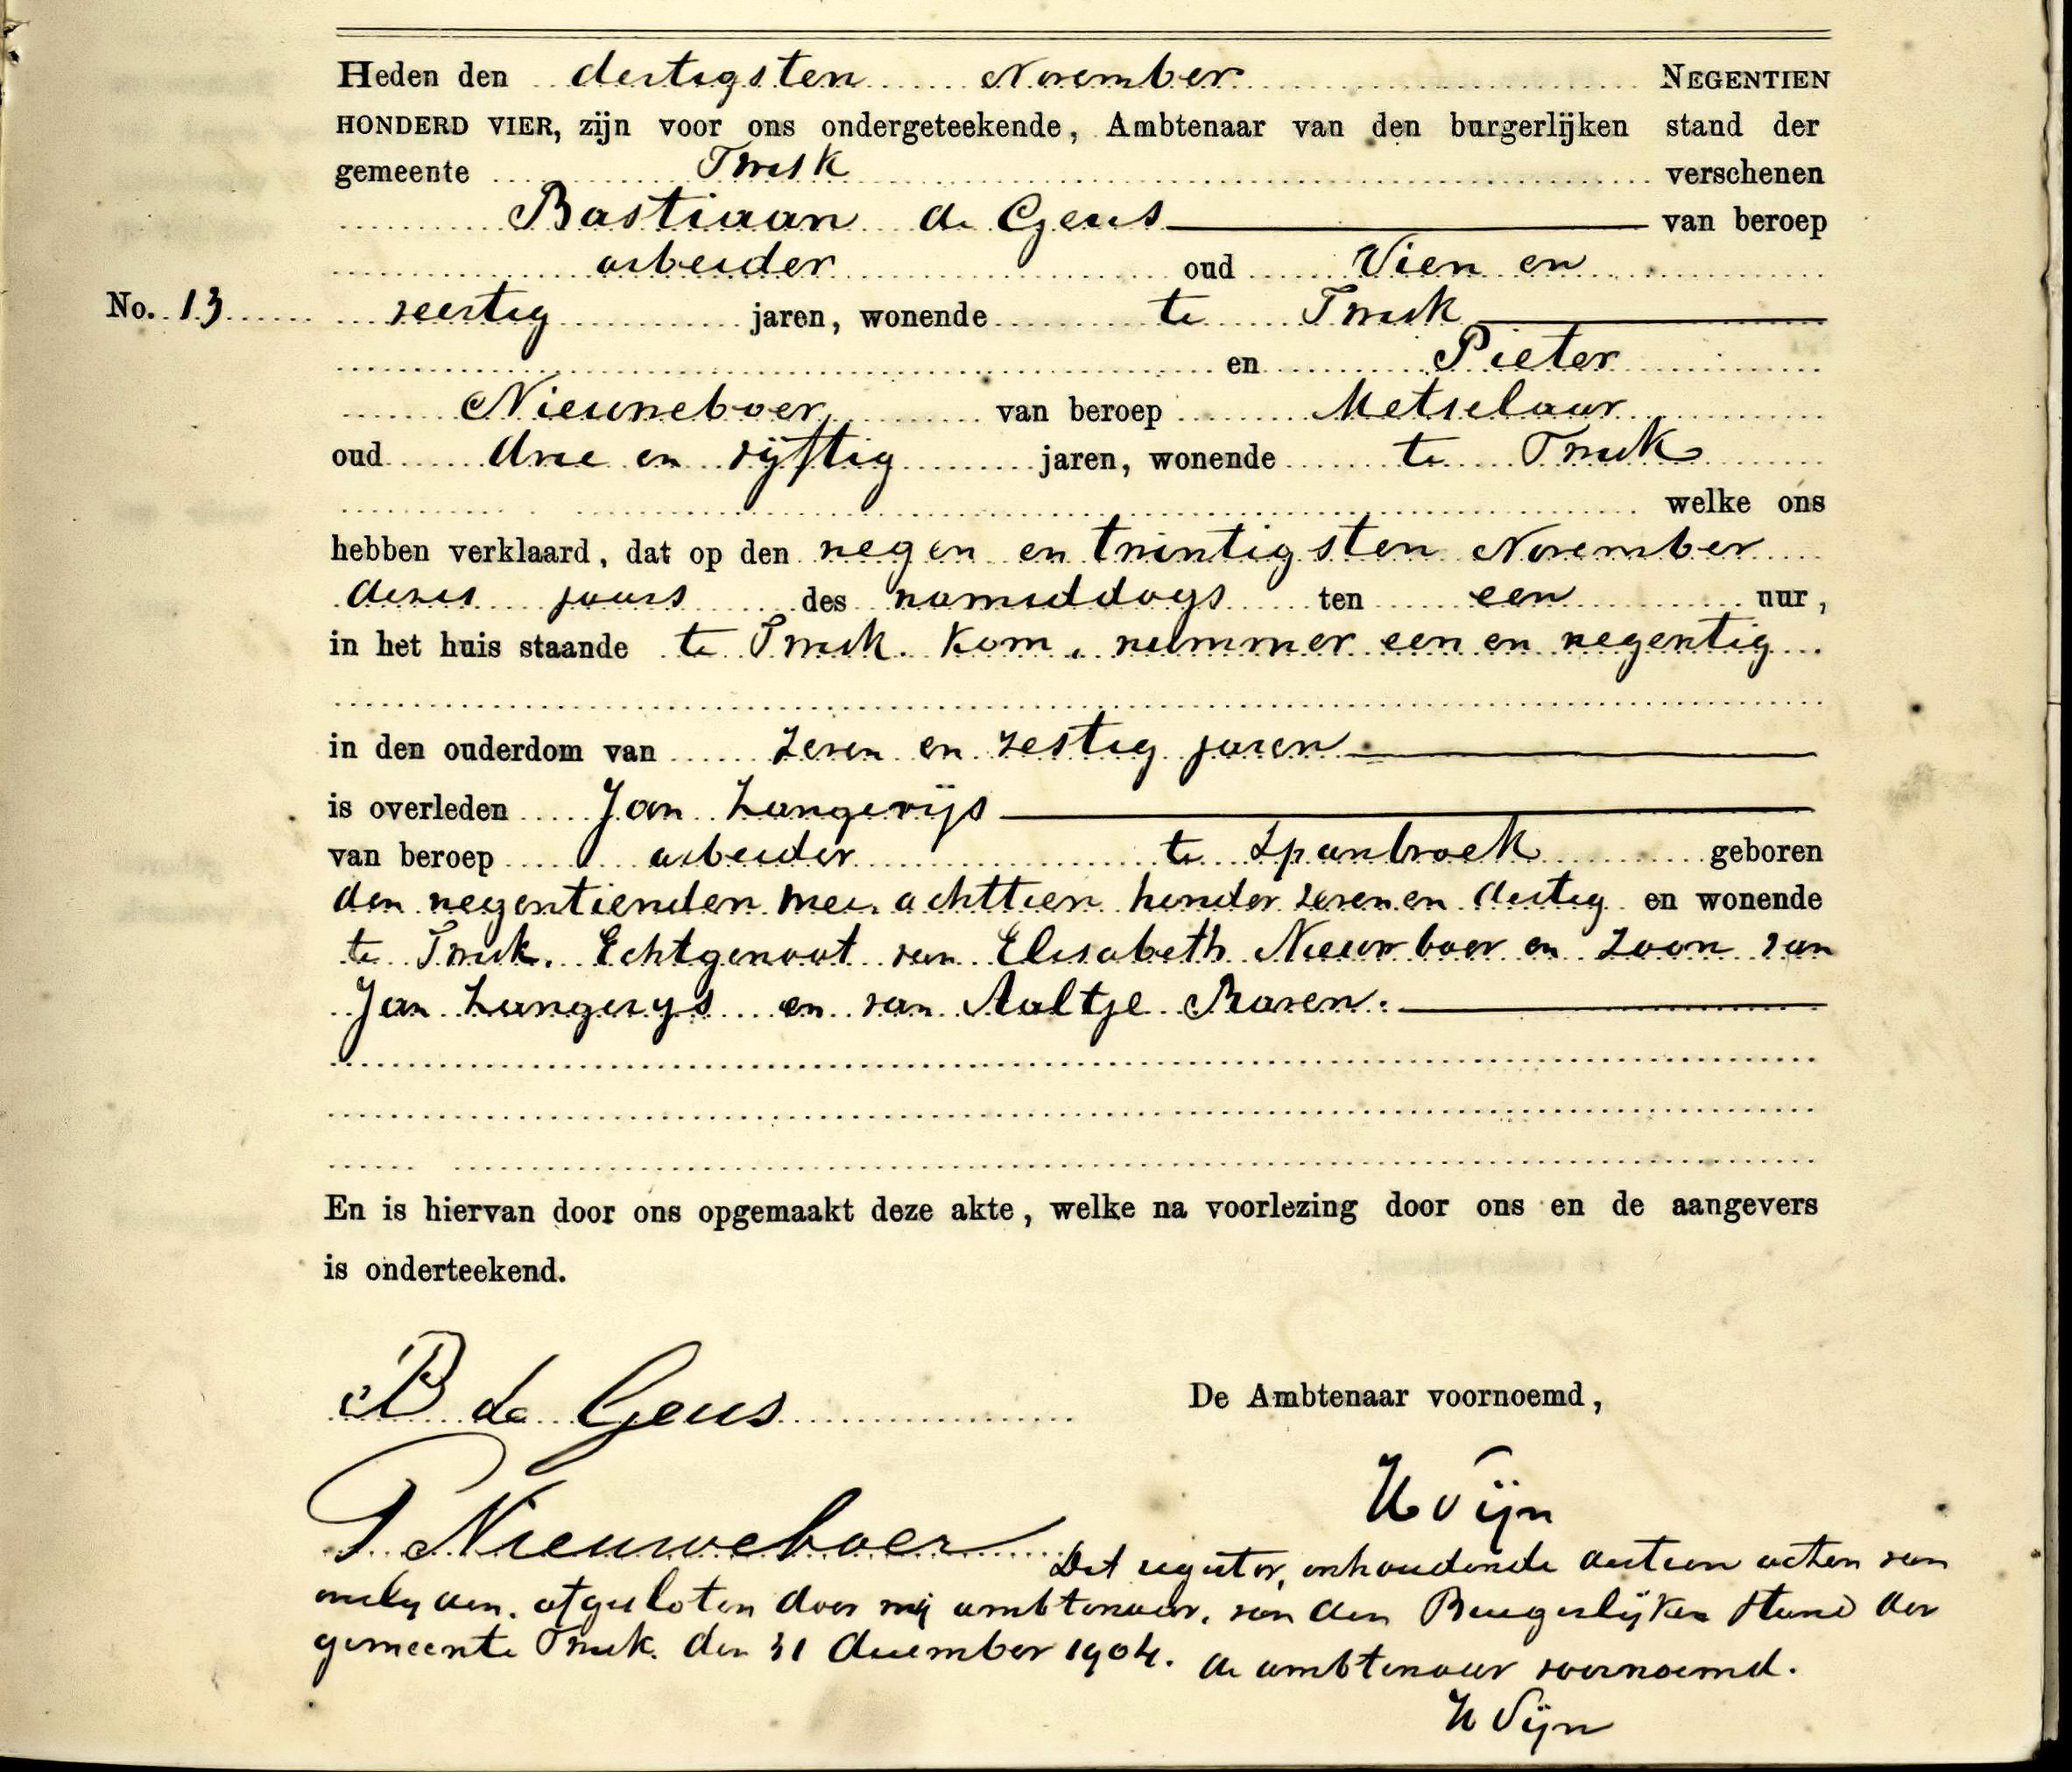 Heden den dertigsten November NEGENTIEN
HONDERD VIER, zijn voor ons ondergeteekende, Ambtenaar van den burgerlijken stand der
gemeente Twisk verschenen
Bastiaan de Geus van beroep
arbeider oud Vier en
No. 13 veertig jaren, wonende te Twisk
en Pieter
Nieuweboer van beroep Metselaar
oud drie en vijftig jaren, wonende te Twisk
welke ons
hebben verklaard, dat op den negen en twintigsten November
dezes jaars des namiddags ten een uur,
in het huis staande te Twisk. Kom, nummer een en negentig
in den ouderdom van zeven en zestig jaren
is overleden Jan Langevijs
van beroep arbeider te Spanbroek geboren
den negentienden mei achttien honder zeven en dertig en wonende
te Twisk. Echtgenoot van Elisabeth Nieuwboer en zoon van
Jan Langevys en van Aaltje
En is hiervan door ons opgemaakt deze akte, welke na voorlezing door ons en de aangevers
is onderteekend.
B de Geus
De Ambtenaar voornoemd,
Vijn
P Nieuweboer
Dit register, inhoudende dertien acten van
overlyden, afgesloten door mij ambtenaar, van den Burgerlijken Stand der
gemeente Twisk. den 31 december 1904. de ambtenaar voornoemd.
Vijn